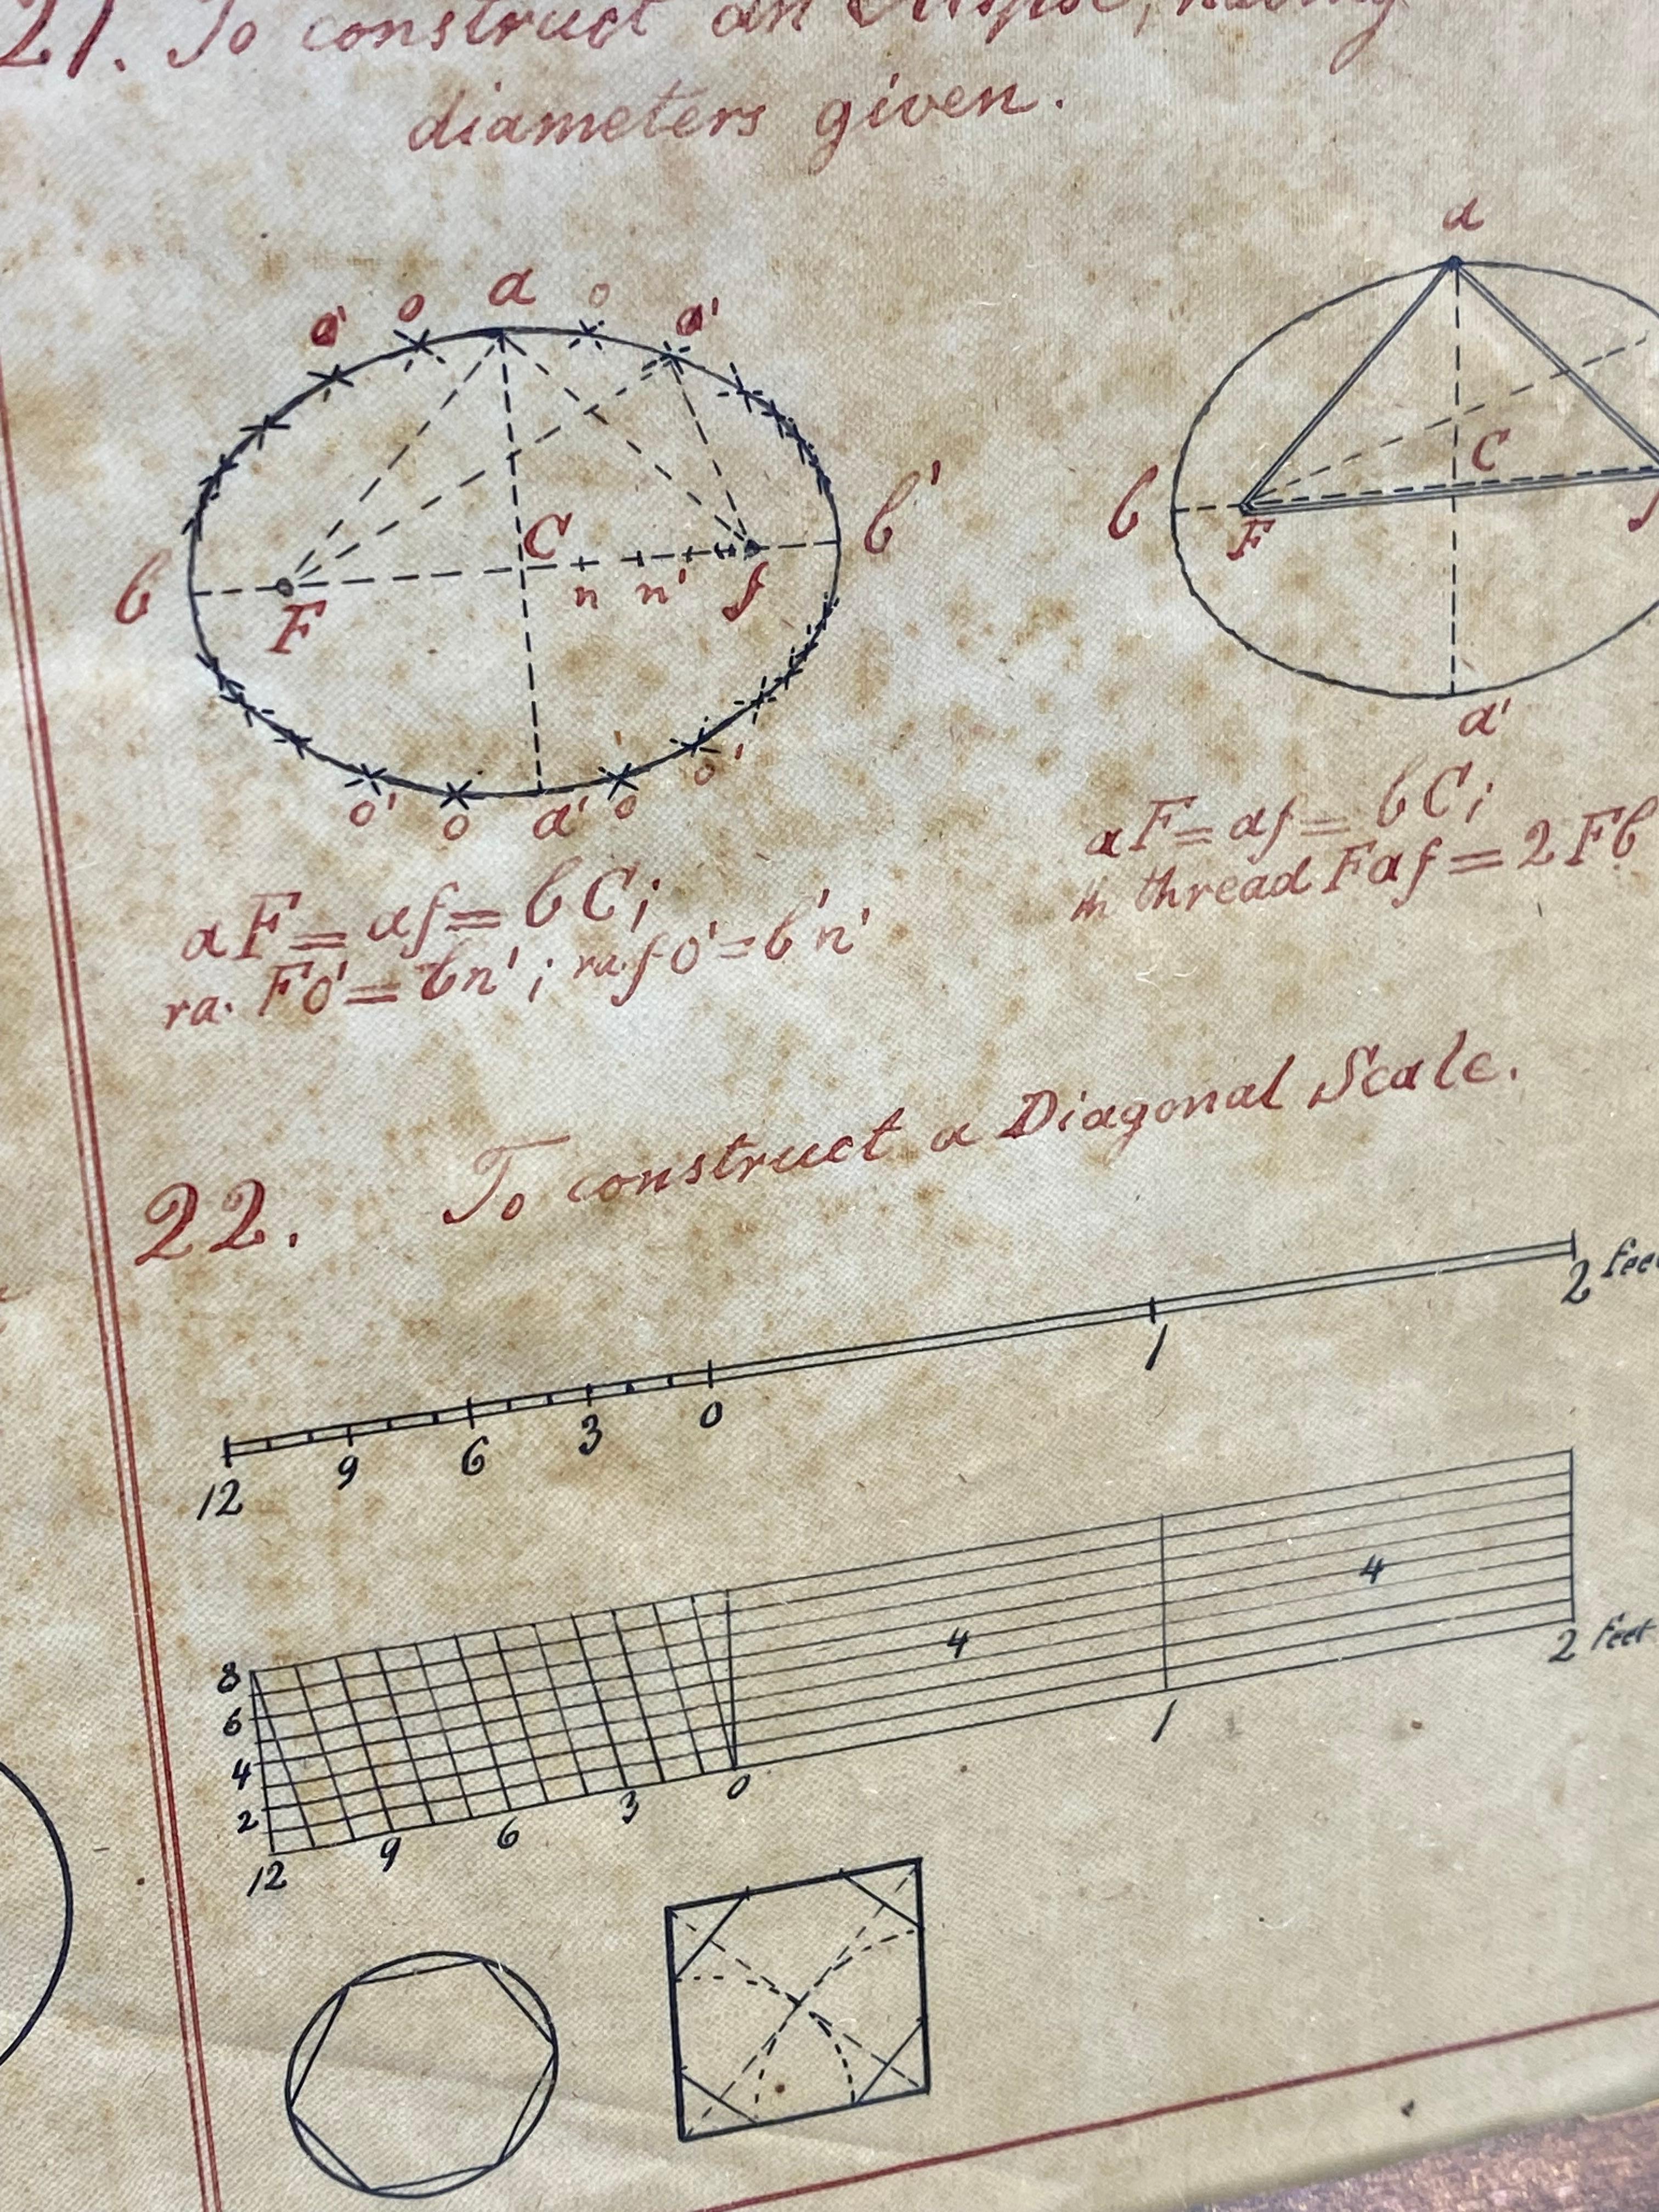 21. To construct an Ellipse, having
diameters given.
a' o a o a'
b F C n n' f b'
o' o a' o o'
a
b F C f
a'
aF = af = bC;
ra. Fo' = bn'; ra. fo' = b'n'
aF = af = bC;
th thread Faf = 2Fb
22. To construct a Diagonal Scale.
12 9 6 3 0 1 2 feet
8
6
4
2
4 4
12 9 6 3 0 1 2 feet